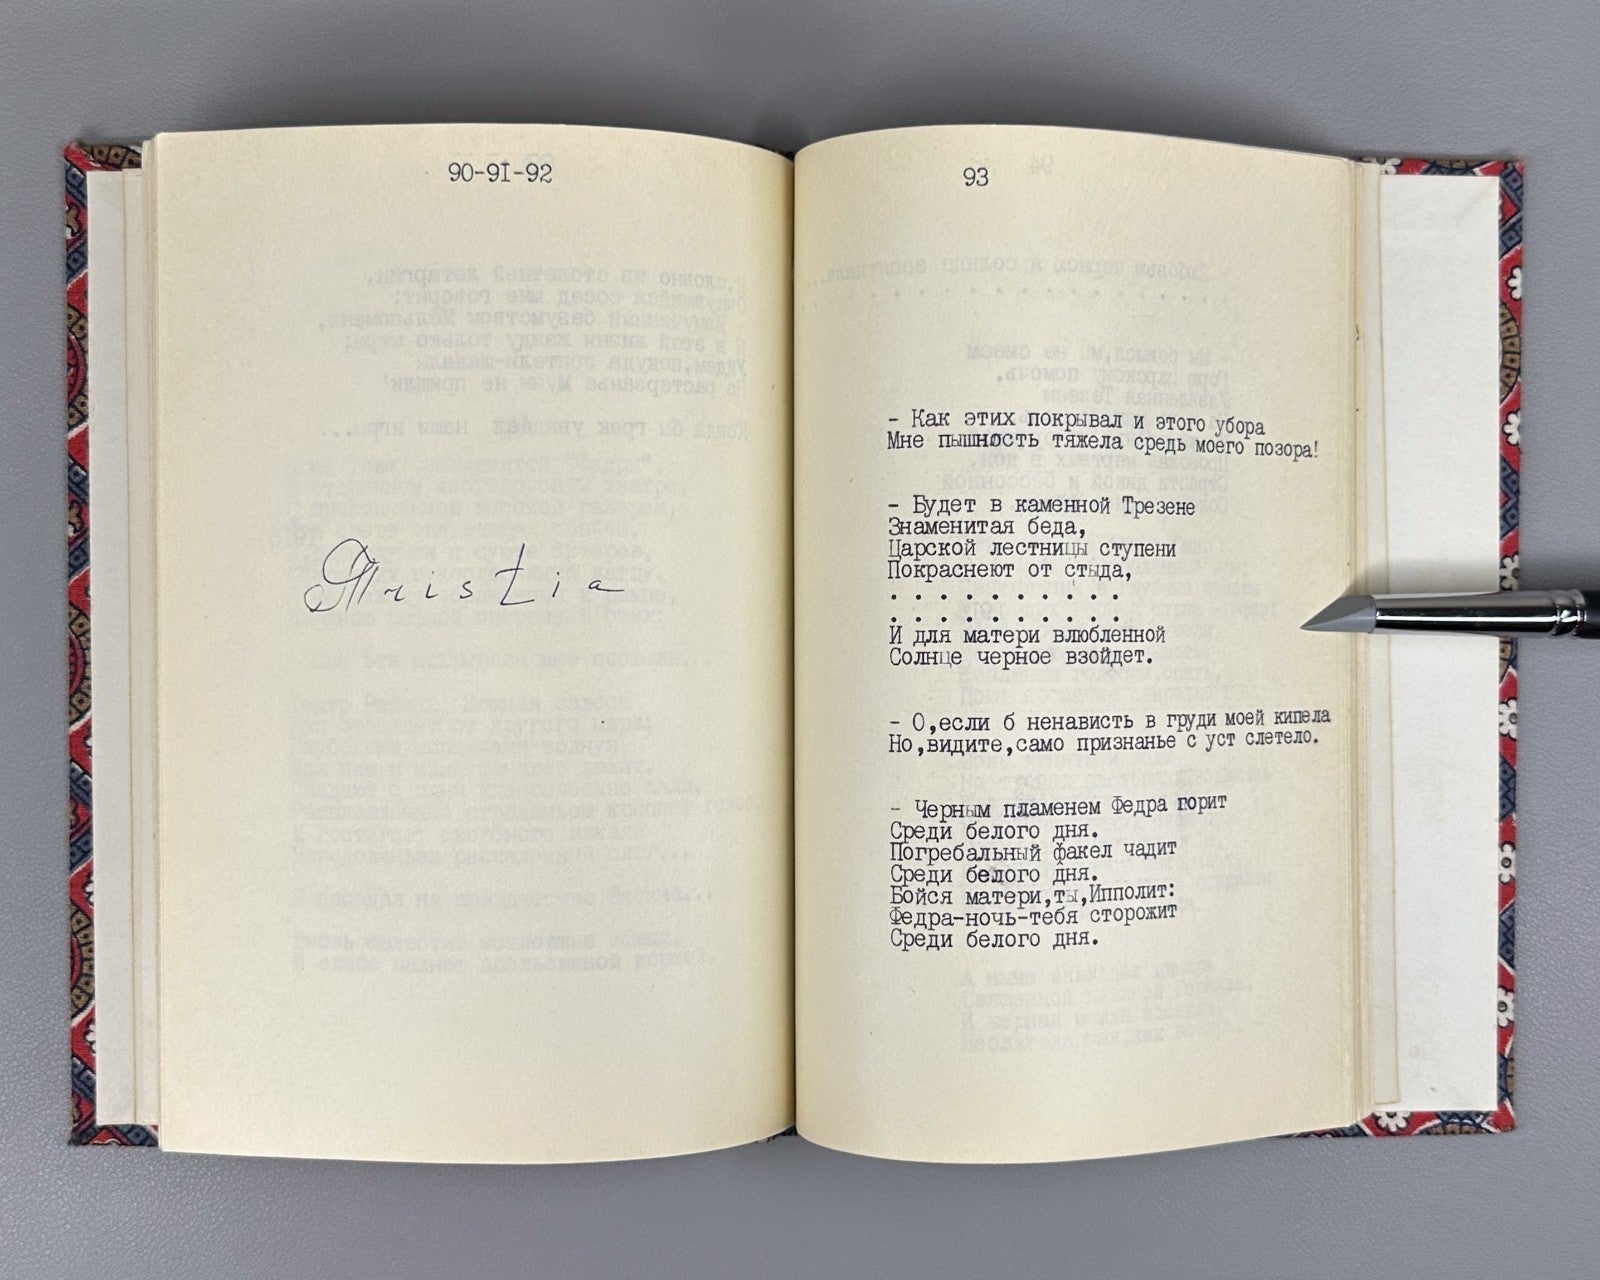 90-9I-92
Tristia
93
- Как этих покрывал и этого убора
Мне пышность тяжела средь моего позора!
- Будет в каменной Трезене
Знаменитая беда,
Царской лестницы ступени
Покраснеют от стыда,
. . . . . . . . . .
. . . . . . . . . .
И для матери влюбленной
Солнце черное взойдет.
- О,если б ненависть в груди моей кипела
Но,видите,само признанье с уст слетело.
- Черным пламенем Федра горит
Среди белого дня.
Погребальный факел чадит
Среди белого дня.
Бойся матери,ты,Ипполит:
Федра-ночь-тебя сторожит
Среди белого дня.